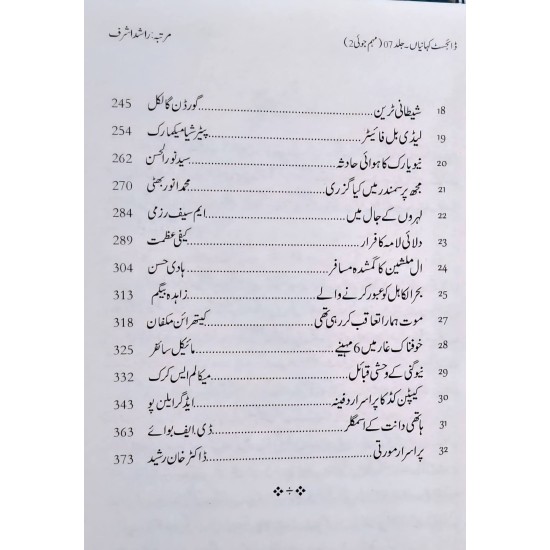 ڈائجسٹ کہانیاں۔ جلد 07 (مہم جوئی 2) مرتبہ: راشد اشرف
18 شیطانی ٹرین گورڈن گالکل 245
19 لیڈی بل فائیٹر پیٹر شیا میکمارک 254
20 نیویارک کا ہوائی حادثہ سید نور الحسن 262
21 مجھ پر سمندر میں کیا گزری محمد انور بھٹی 270
22 لہروں کے جال میں ایم سیف رزمی 284
23 دلائی لامہ کا فرار کیفی عظمت 289
24 ال ملشین کا گمشدہ مسافر ہادی حسن 304
25 بحر الکاہل کو عبور کرنے والے زاہدہ بیگم 313
27 موت ہمارا تعاقب کر رہی تھی کیتھرائن مکفان 318
28 خوفناک غار میں 6 مہینے مائیکل سائفر 325
29 نیوگنی کے وحشی قبائل میکالم ایس کرک 332
30 کیپٹن کڈ کا پراسرار دفینہ ایڈگر ایلن پو 343
31 ہاتھی دانت کے اسمگلر ڈی۔ ایف بوائے 363
32 پراسرار مورتی ڈاکٹر خان رشید 373